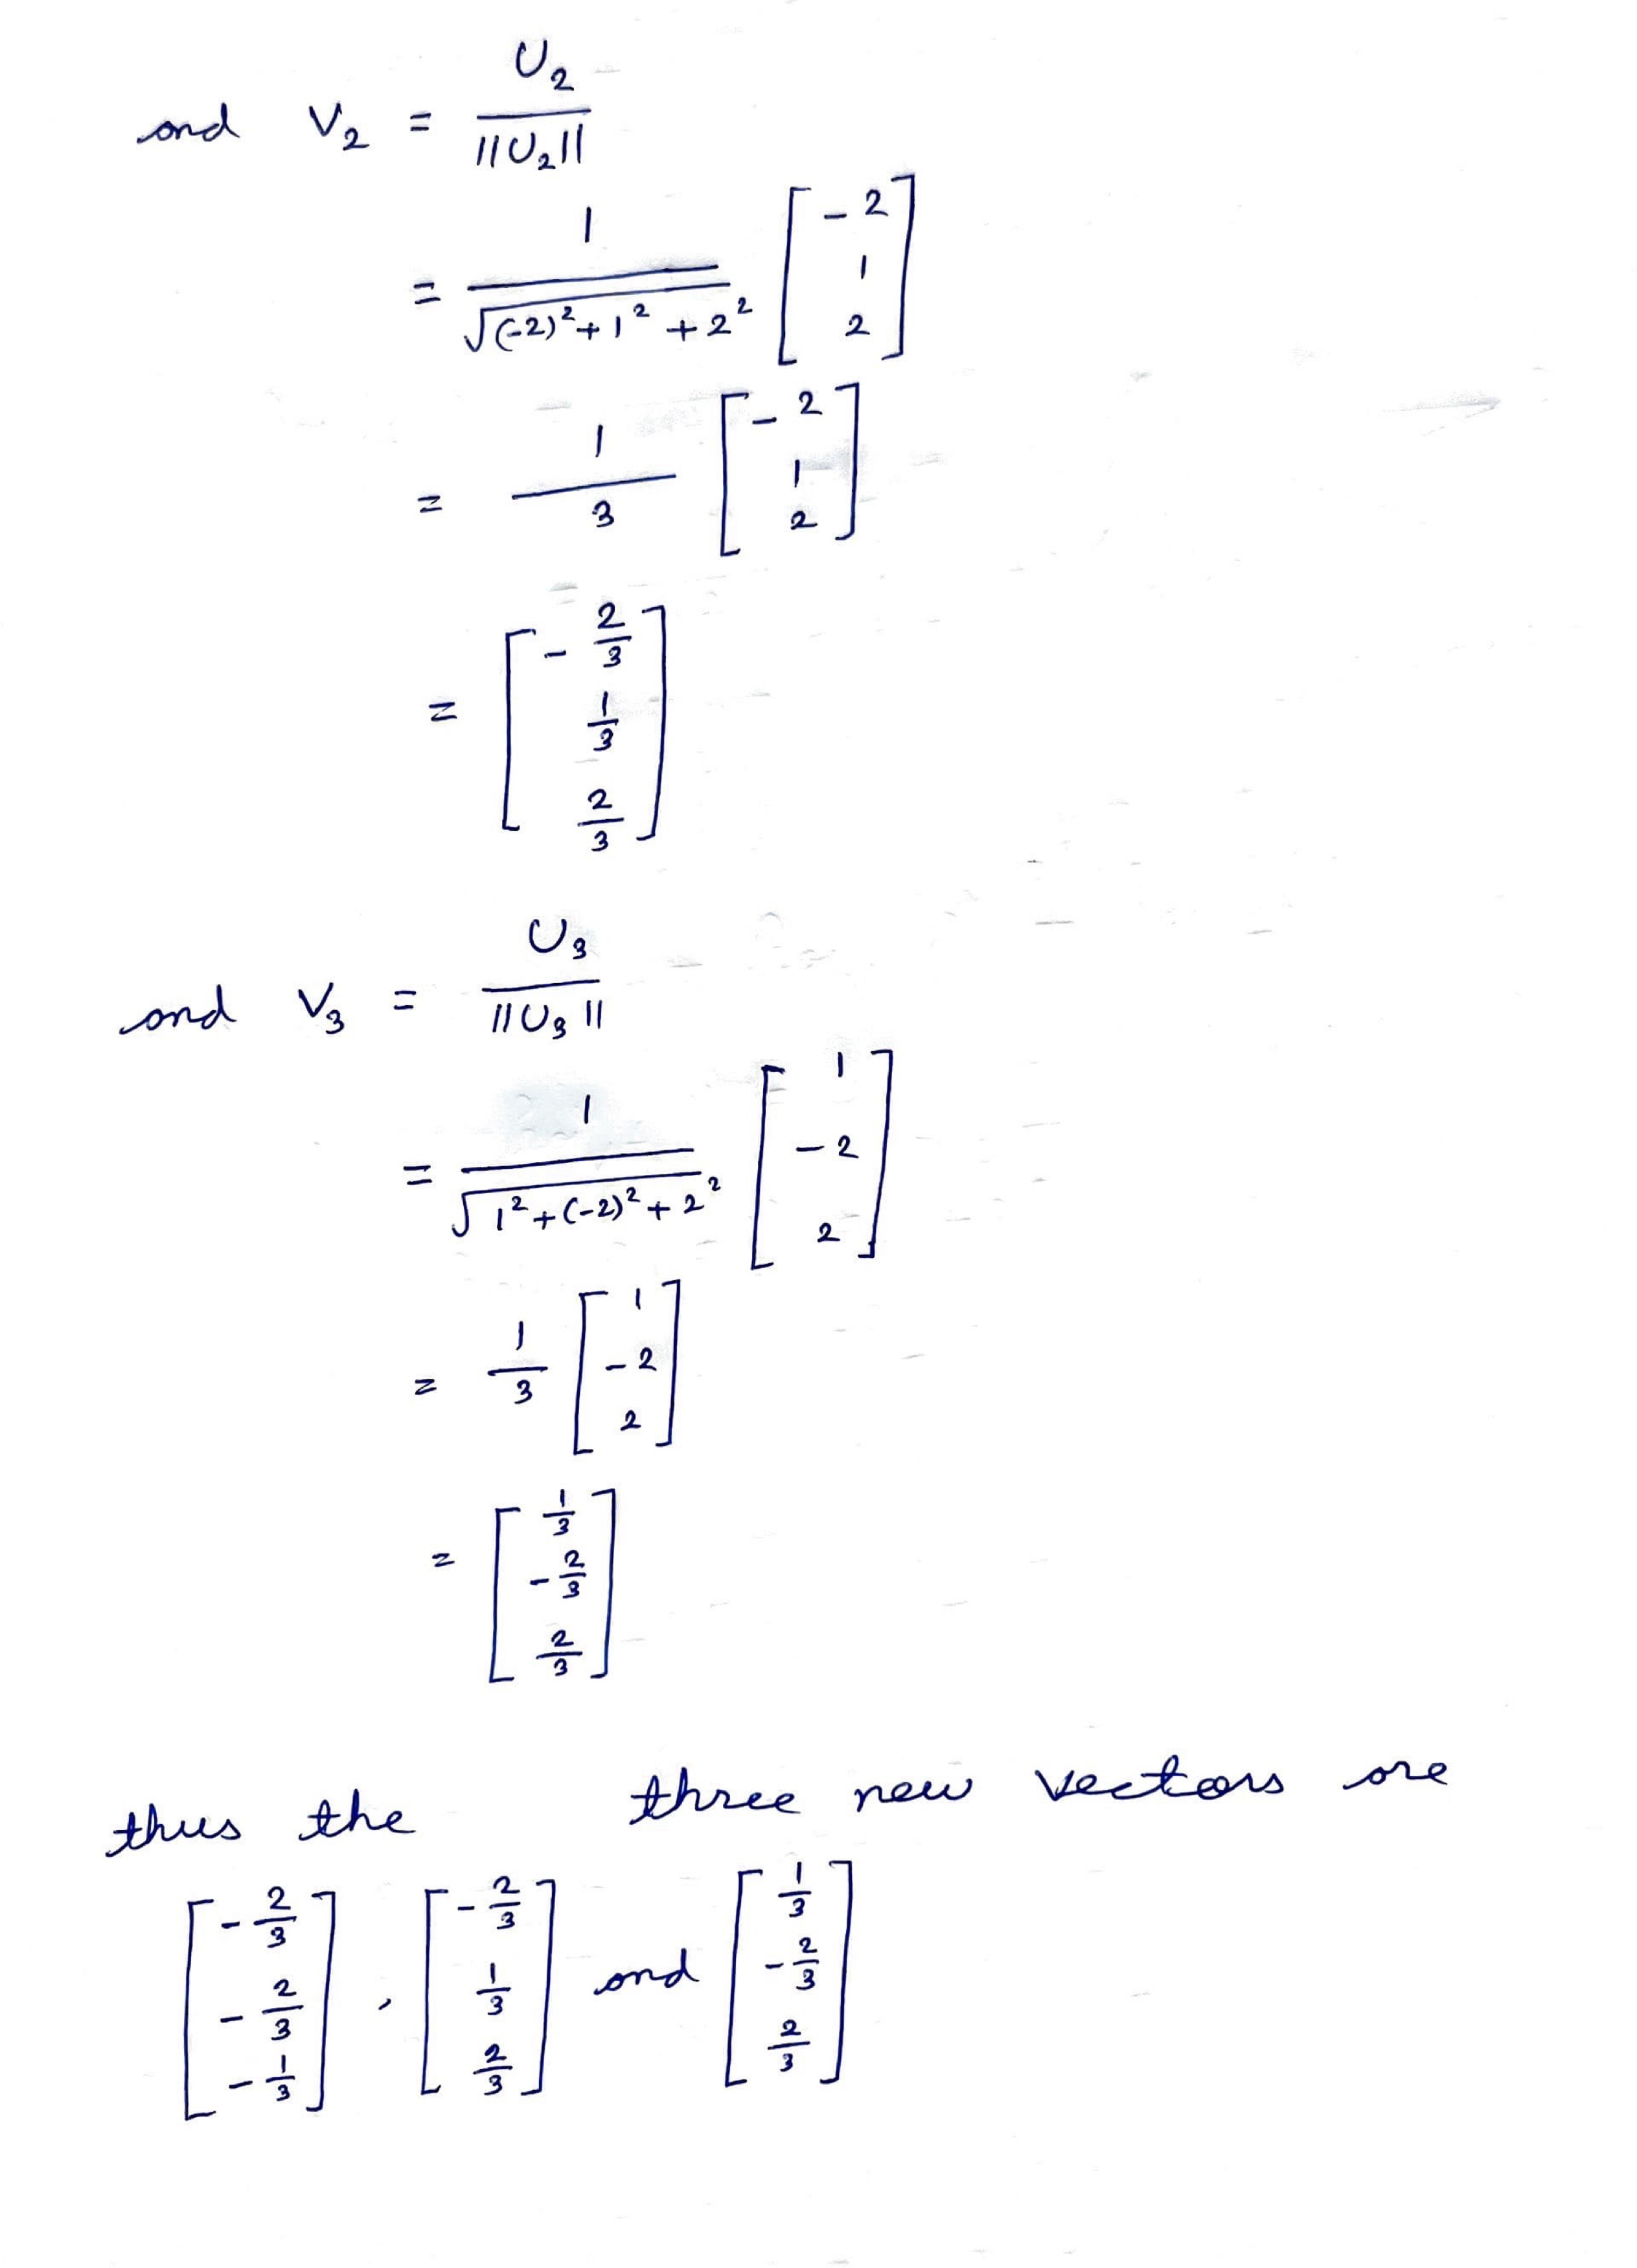 and V₂ = U₂ / ||U₂||
= 1 / √((-2)² + 1² + 2²) [-2 1 2]
= 1/3 [-2 1 2]
= [-2/3 1/3 2/3]
and V₃ = U₃ / ||U₃||
= 1 / √(1² + (-2)² + 2²) [1 -2 2]
= 1/3 [1 -2 2]
= [1/3 -2/3 2/3]
thus the three new vectors are
[-2/3 -2/3 -1/3] , [-2/3 1/3 2/3] and [1/3 -2/3 2/3]